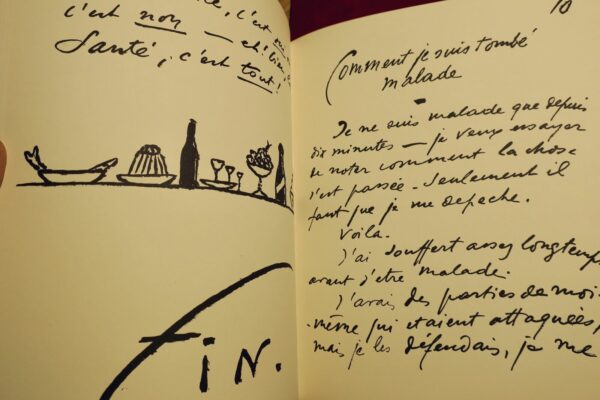 c'est non – et bien
Santé, c'est tout!
FIN.
10
Comment je suis tombé
malade
Je ne suis malade que depuis
dix minutes – je veux essayer
de noter comment la chose
s'est passée. Seulement il
faut que je me depeche.
Voila.
J'ai souffert assez longtemps
avant d'etre malade.
J'avais des parties de moi-
-même qui etaient attaquées,
mais je les défendais, je me